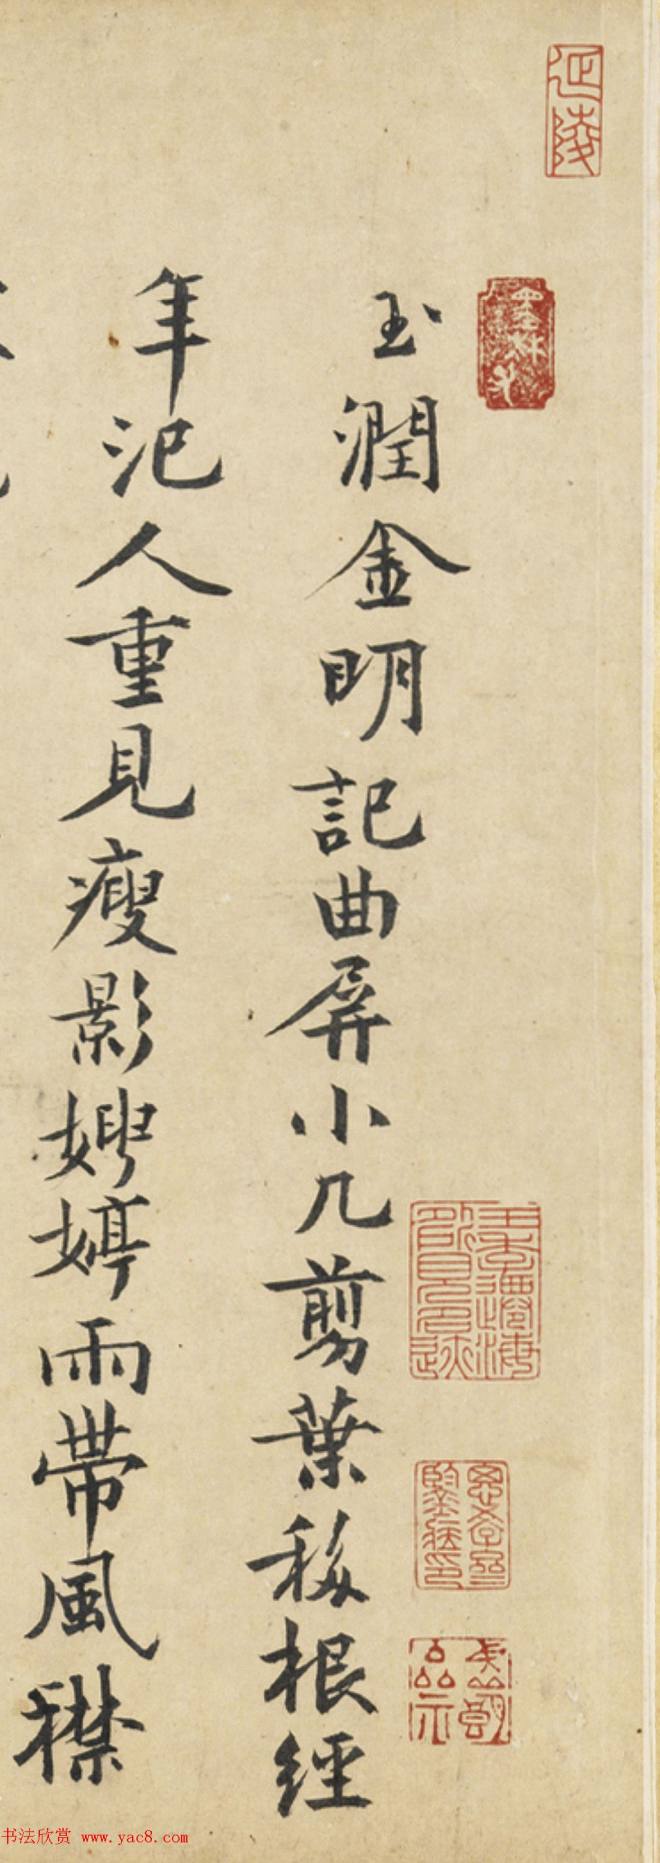 玉潤金明記曲屏小几剪葉移根經
年汜人重見瘦影娉婷雨帶風襟
延陵
书法欣赏 www.yac8.com